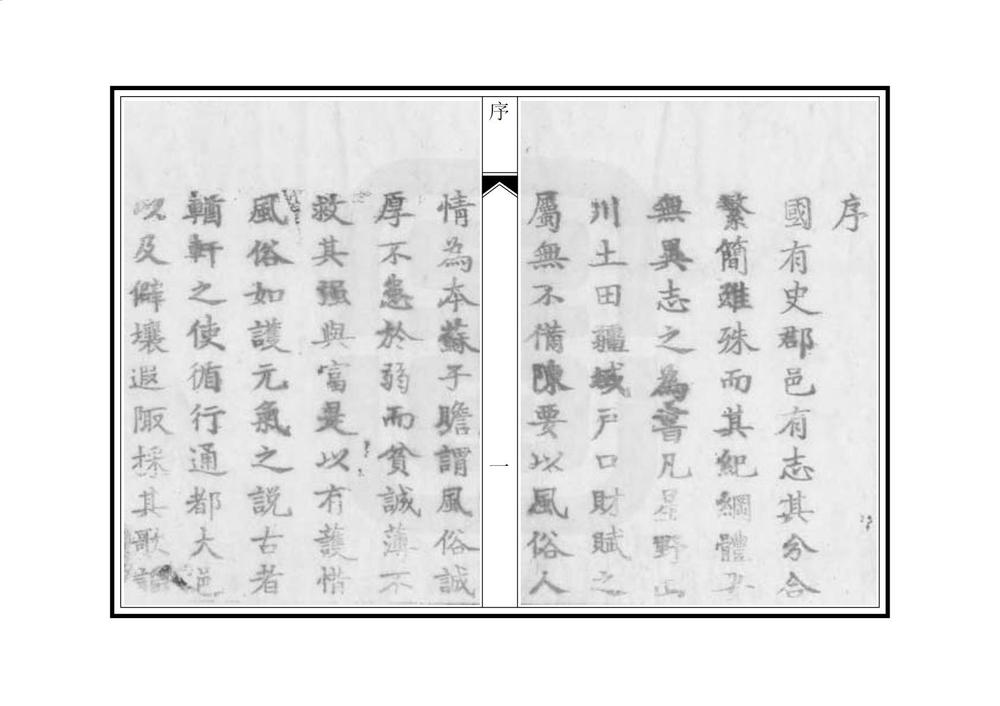 序
國有史郡邑有志其分合
繁簡雖殊而其紀綱體要
無異志之為書凡星野山
川土田疆域戶口財賦之
屬無不備陳要以風俗人
序
一
情為本蘇子瞻謂風俗誠
厚不患於弱而貧誠薄不
救其强與富是以有護惜
風俗如護元氣之説古者
輶軒之使循行通都大邑
以及僻壤遐陬採其歌謠